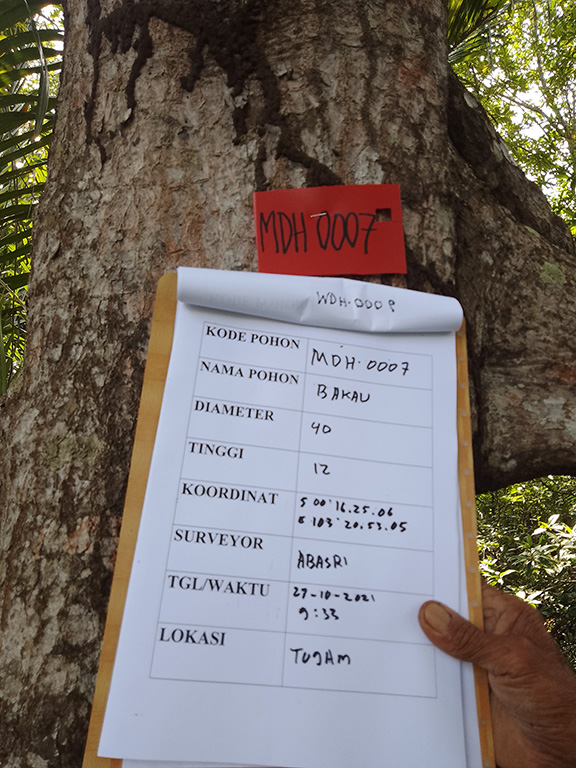 MDH 0007
WDH-0009
KODE POHON MDH-0007
NAMA POHON BAKAU
DIAMETER 40
TINGGI 12
KOORDINAT S 00°16.25.06
E 103°20.53.05
SURVEYOR ABASRI
TGL/WAKTU 27-10-2021
9:33
LOKASI TUJAM